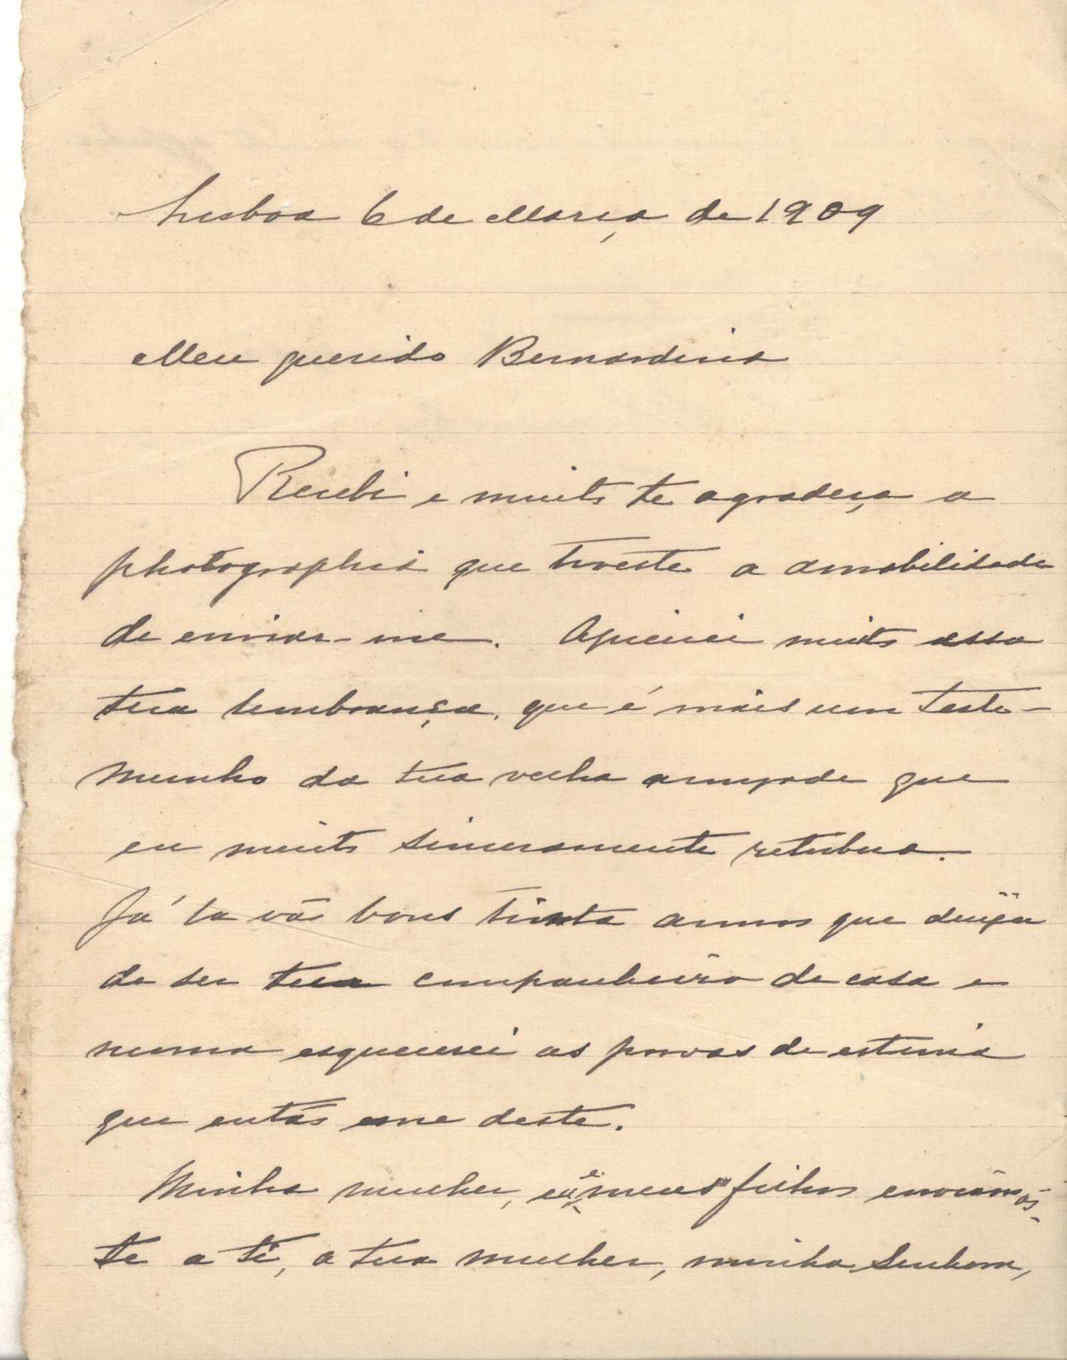 Lisboa 6 de Março de 1909
Meu querido Bernardino
Recebi e muito te agradeço a
photographia que tiveste a amabilidade
de enviar-me. Apreciei muito essa
tua lembrança, que é mais um teste-
munho da tua velha amizade que
eu muito sinceramente retribuo.
Já la vão bons trinta annos que deixei
de ser teu companheiro de casa e
nunca esquecerei as provas de estima
que então me deste.
Minha mulher, eu e meus filhos enviamos-
te a ti, a tua mulher, minha Senhora,